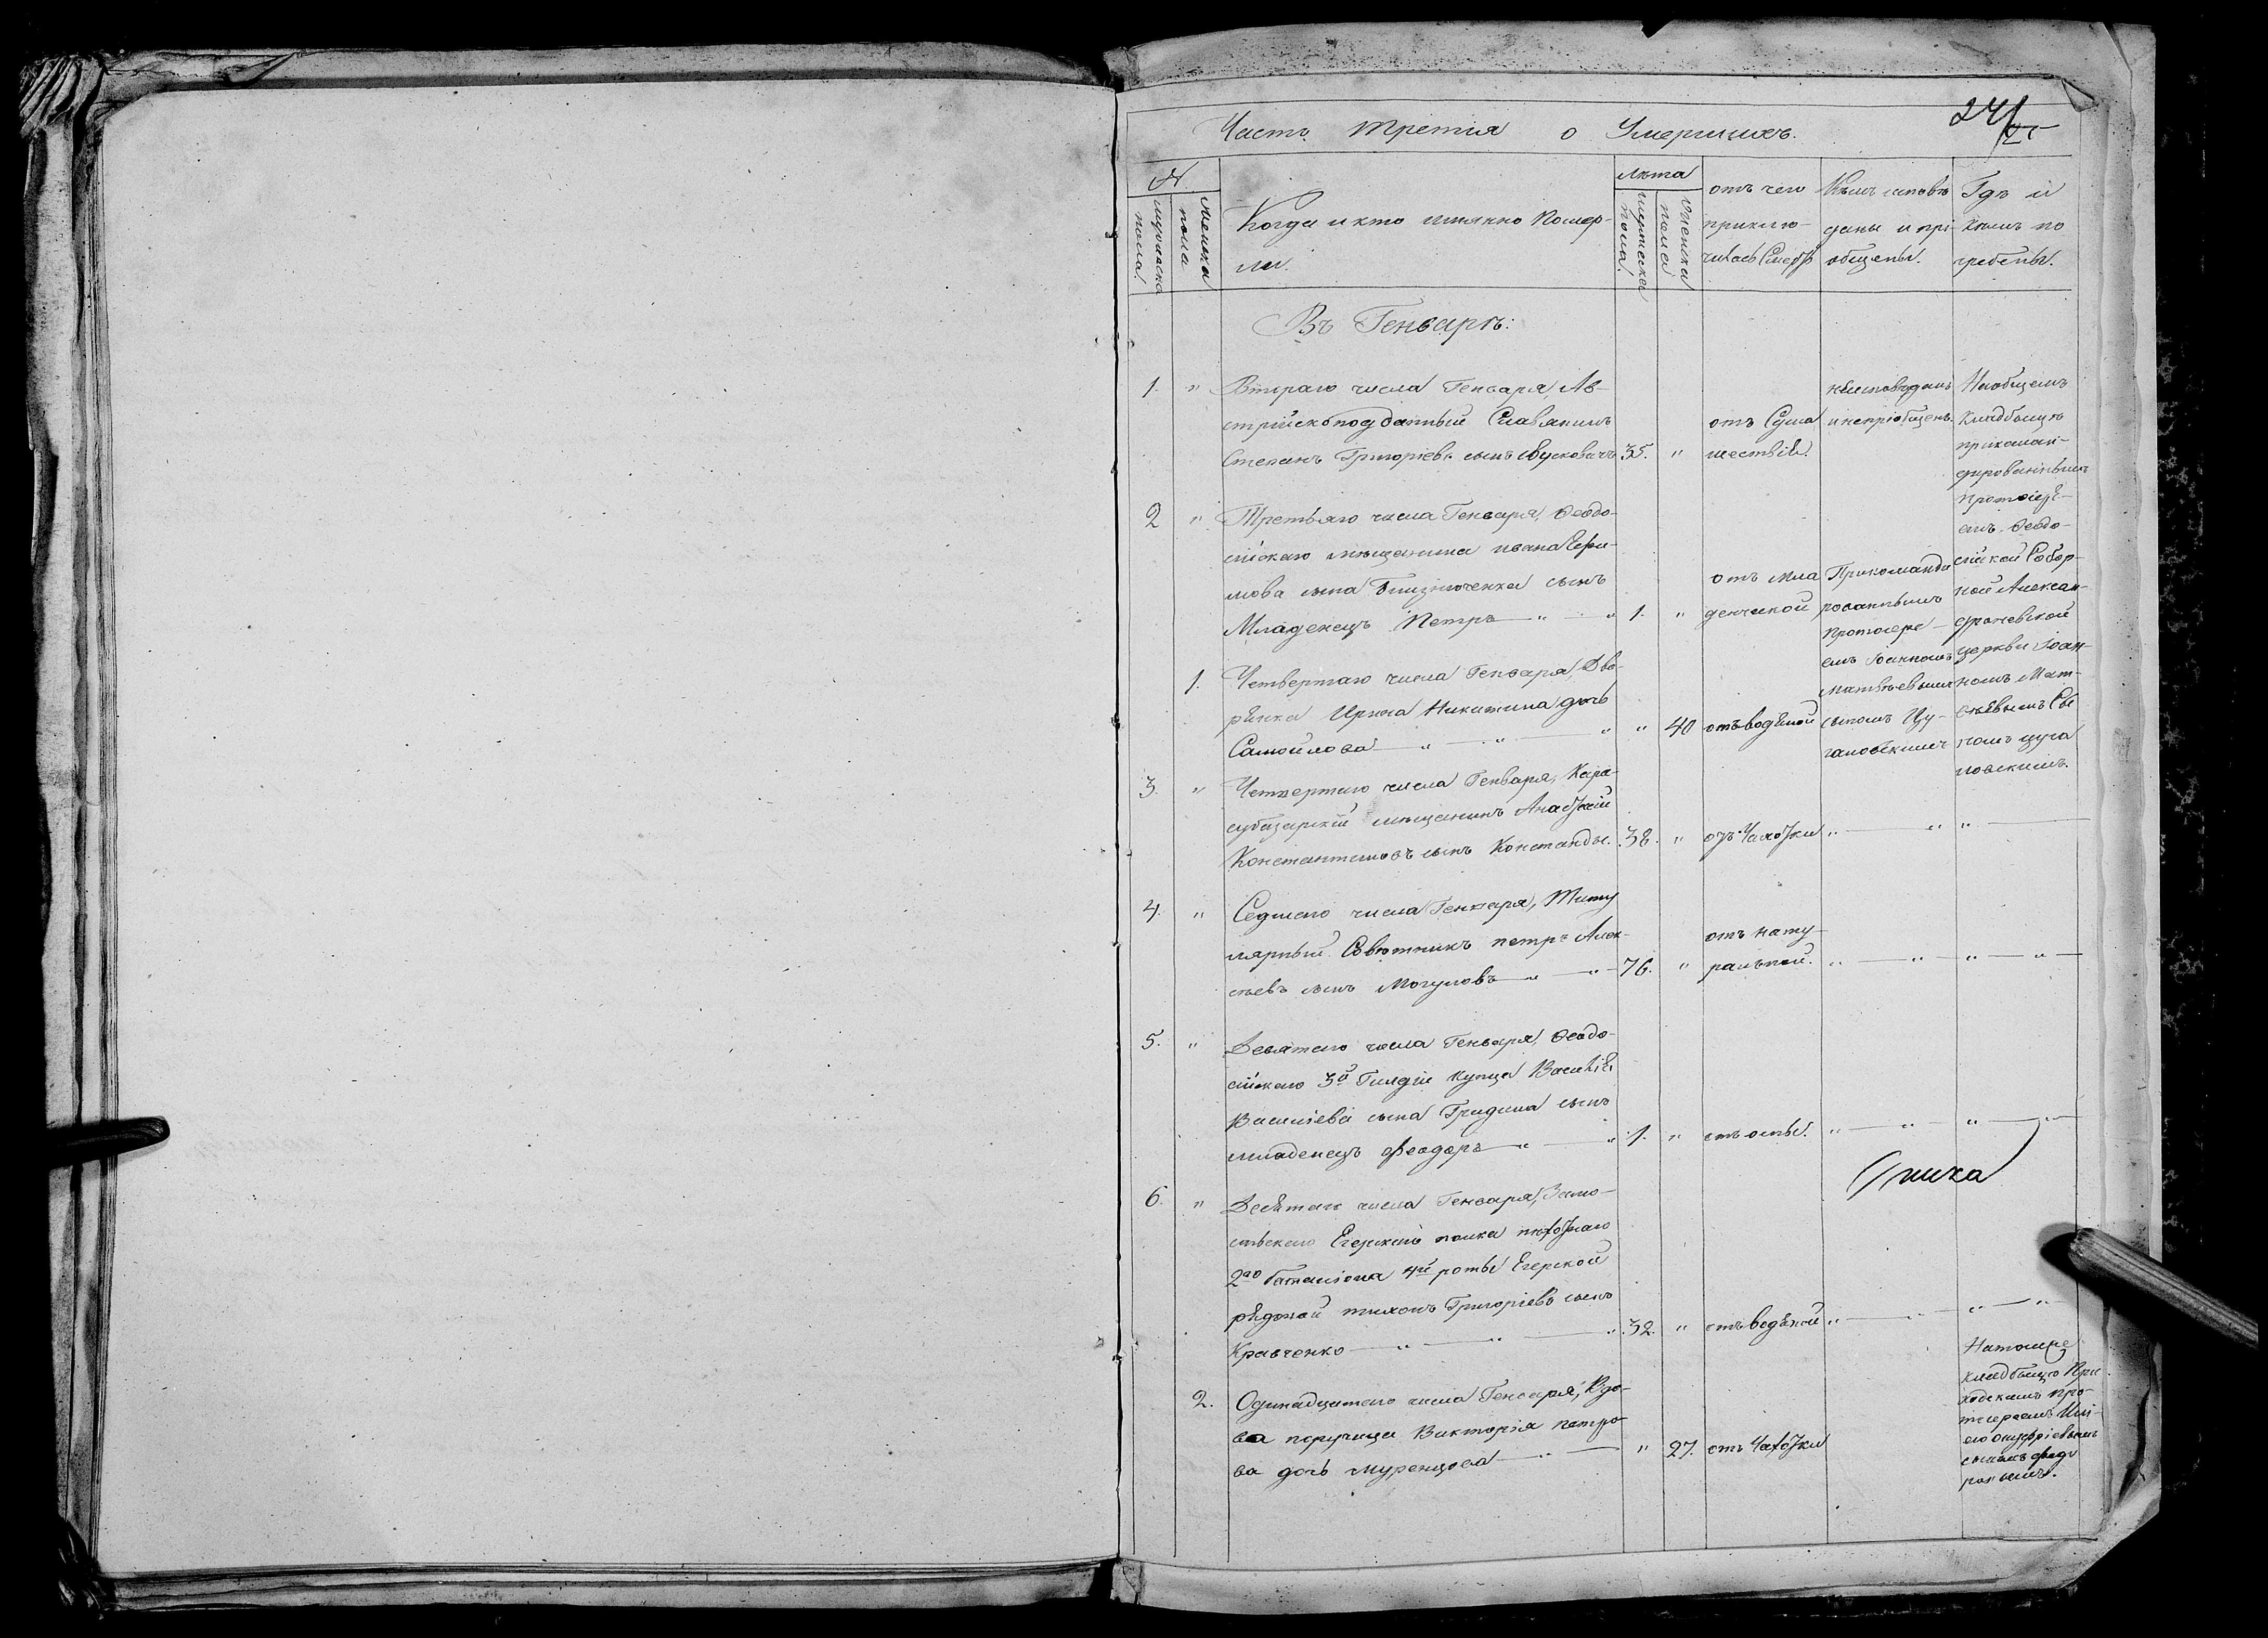 Часть третія о Умершихъ.
241
№
мужеска пола.
женска пола
Когда и кто имянно Помер-
ли.
лѣта
мужеска пола.
женска пола
отъ чего
приклю-
чилась Смерть
Кѣмъ исповѣ
даны и прі-
общены.
Гдѣ и
кѣмъ по
гребены.
Въ Генварѣ:
1. " Втораго числа Генваря, Ав-
стрійскоподданный Славянинъ
Степанъ Григоріевъ сынъ 35. "
отъ Сума
шествія.
неисповѣданъ
и непріобщенъ.
На общемъ
кладбищѣ
прикоман-
дированнымъ
протоіере-
емъ Ѳеодо-
сійской Собор-
ной Алексан-
дроневской
церкви Іоан-
номъ Мат-
вѣевымъ Сы
номъ Цуга
новскимъ.
2 " Третьяго числа Генваря, Ѳеодо-
сійскаго мѣщанина Ивана Ефи-
мова сына Близнюченка сынъ
Младенецъ Петръ — " — " 1. "
отъ мла
денческой
Прикоманди
рованнымъ
Протоіере-
емъ Іоанномъ
Матвѣевымъ
сыномъ Цу-
гановскимъ
1. Четвертаго числа Генваря, Дво-
рянка Ирина Никитина дочь
Самойлова — " — " — " " 40 отъ водяной
3. " Четвертаго числа Генваря, Кара-
субазарскій мѣщанинъ
Константиновъ сынъ Констанды. 38. " отъ Чахотки " — " "
4. " Седмаго числа Генваря, Титу
лярный Совѣтникъ Петръ Алек-
сѣевъ сынъ Могуновъ — " — " 76. "
отъ нату-
ральной. " — " — " — "
5. " Девятаго числа Генваря, Ѳеодо-
сійскаго 3й Гильдіи купца Василія
Василіева сына Гридина сынъ
младенецъ Феодоръ — " — " 1. " отъ оспы. " — " — " — "
6. " Десятаго числа Генваря, Замо-
стьскаго Егерскаго полка пѣхотнаго
2го баталіона 4й роты Егерской
рядовой Тихонъ Григоріевъ сынъ
Кравченко — " — " — " 32. " отъ водяной " — " — " — "
2. Одинадцатаго числа Генваря, Вдо-
ва Викторія Петро-
ва дочь Муренцова — " — " 27. отъ Чахотки
На томже
кладбищѣ При
ходскимъ про-
тоіереемъ Илі-
ею Онуфріевымъ
сыномъ